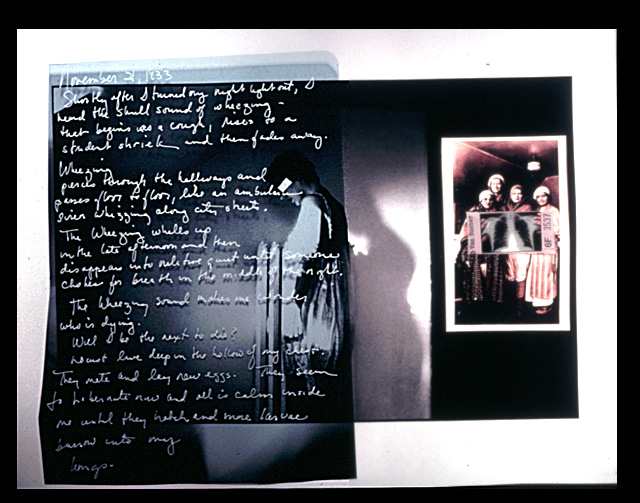 November 21, 1933
Shortly after I turned my night light out, I
heard the shrill sound of wheezing -
that begins as a cough, rises to a
strident shriek and then fades away.
Wheezing
pierces through the hallways and
passes floor to floor, like an ambulance
siren whizzing along city streets.
The Wheezing whirls up
in the late afternoon and then
disappears into relative quiet until someone
chokes for breath in the middle of the night.
The wheezing sound makes me wonder
who is dying.
Will I be the next to die?
Locust live deep in the hollow of my chest.
They mate and lay new eggs. They seem
to hibernate now and all is calm inside
me until they hatch and more larvae
burrow into my
lungs.
6F 3537